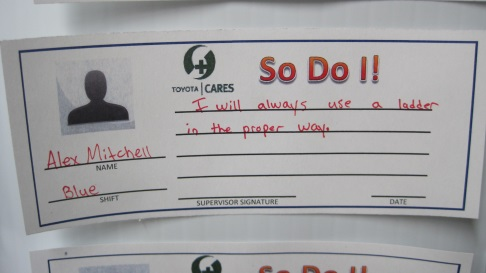 So Do I!
TOYOTA | CARES
I will always use a ladder
in the proper way.
Alex Mitchell
NAME
Blue
SHIFT
SUPERVISOR SIGNATURE
DATE
So Do I!